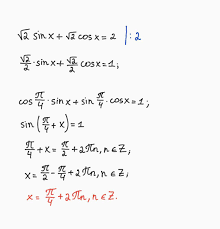 √2 sin x + √2 cos x = 2 | : 2
√2/2 · sin x + √2/2 cos x = 1;
cos π/4 · sin x + sin π/4 · cos x = 1;
sin (π/4 + x) = 1
π/4 + x = π/2 + 2πn, n ∈ Z;
x = π/2 - π/4 + 2πn, n ∈ Z;
x = π/4 + 2πn, n ∈ Z.